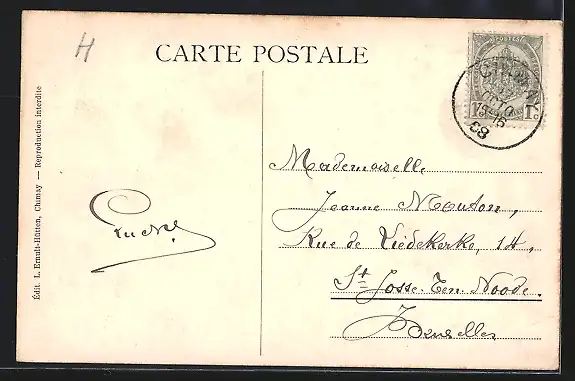 H
CARTE POSTALE
Édit. L. Ernult-Hütten, Chimay — Reproduction interdite
POSTES
1 c
CHIMAY
OCTO
Mademoiselle
Jeanne Mouton,
Rue de Liedekerke, 14,
St Josse-Ten-Noode.
Bruxelles